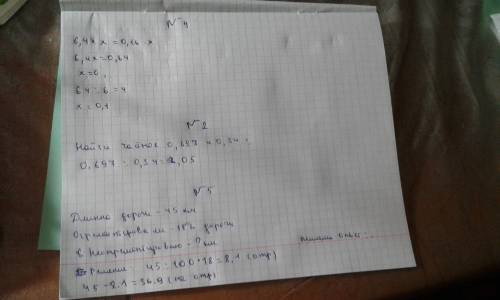 № 4
6,4 x x = 0,16 · x
6,4x = 0,64
x = 0,
64 : 6 = 4
x = 0,1
№ 2
Найти частное 0,697 и 0,34
0,697 : 0,34 = 2,05
№ 5
Длинна дороги - 45 км
Отремонтировали - 18% дороги
Неотремонтировано - ? км
Решение 45 : 100 * 18 = 8,1 (отр)
45 - 8.1 = 36.9 (не отр)